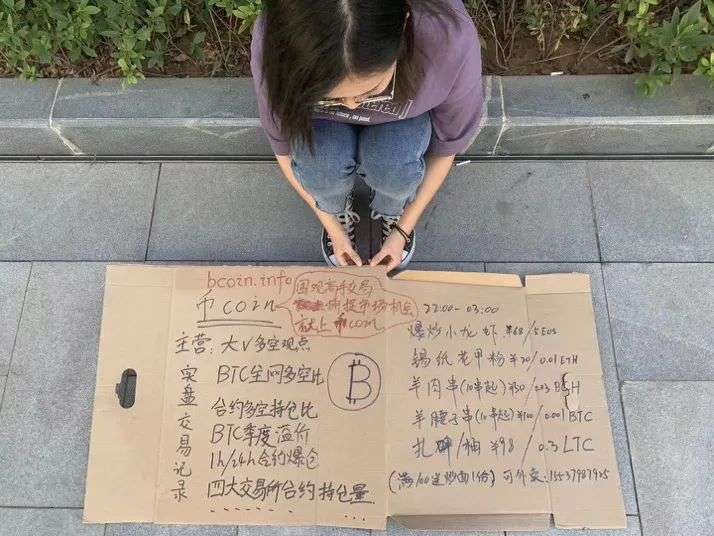 bcoin.info
币coin
围观高手交易
捕捉市场机会
就上币coin
主营:大V多空观点
实盘交易记录
BTC全网多空比
合约多空持仓比
BTC季度溢价
1h/24h合约爆仓
四大交易所合约持仓量
₿
22:00-03:00
爆炒小龙虾 ¥68/5EOS
锡纸花甲粉 ¥20/0.01ETH
羊肉串(10串起)¥50/
羊腰子串(10串起)¥100/0.001BTC
扎啤/桶 ¥98/0.3LTC
(满100送炒面1份)可外交: